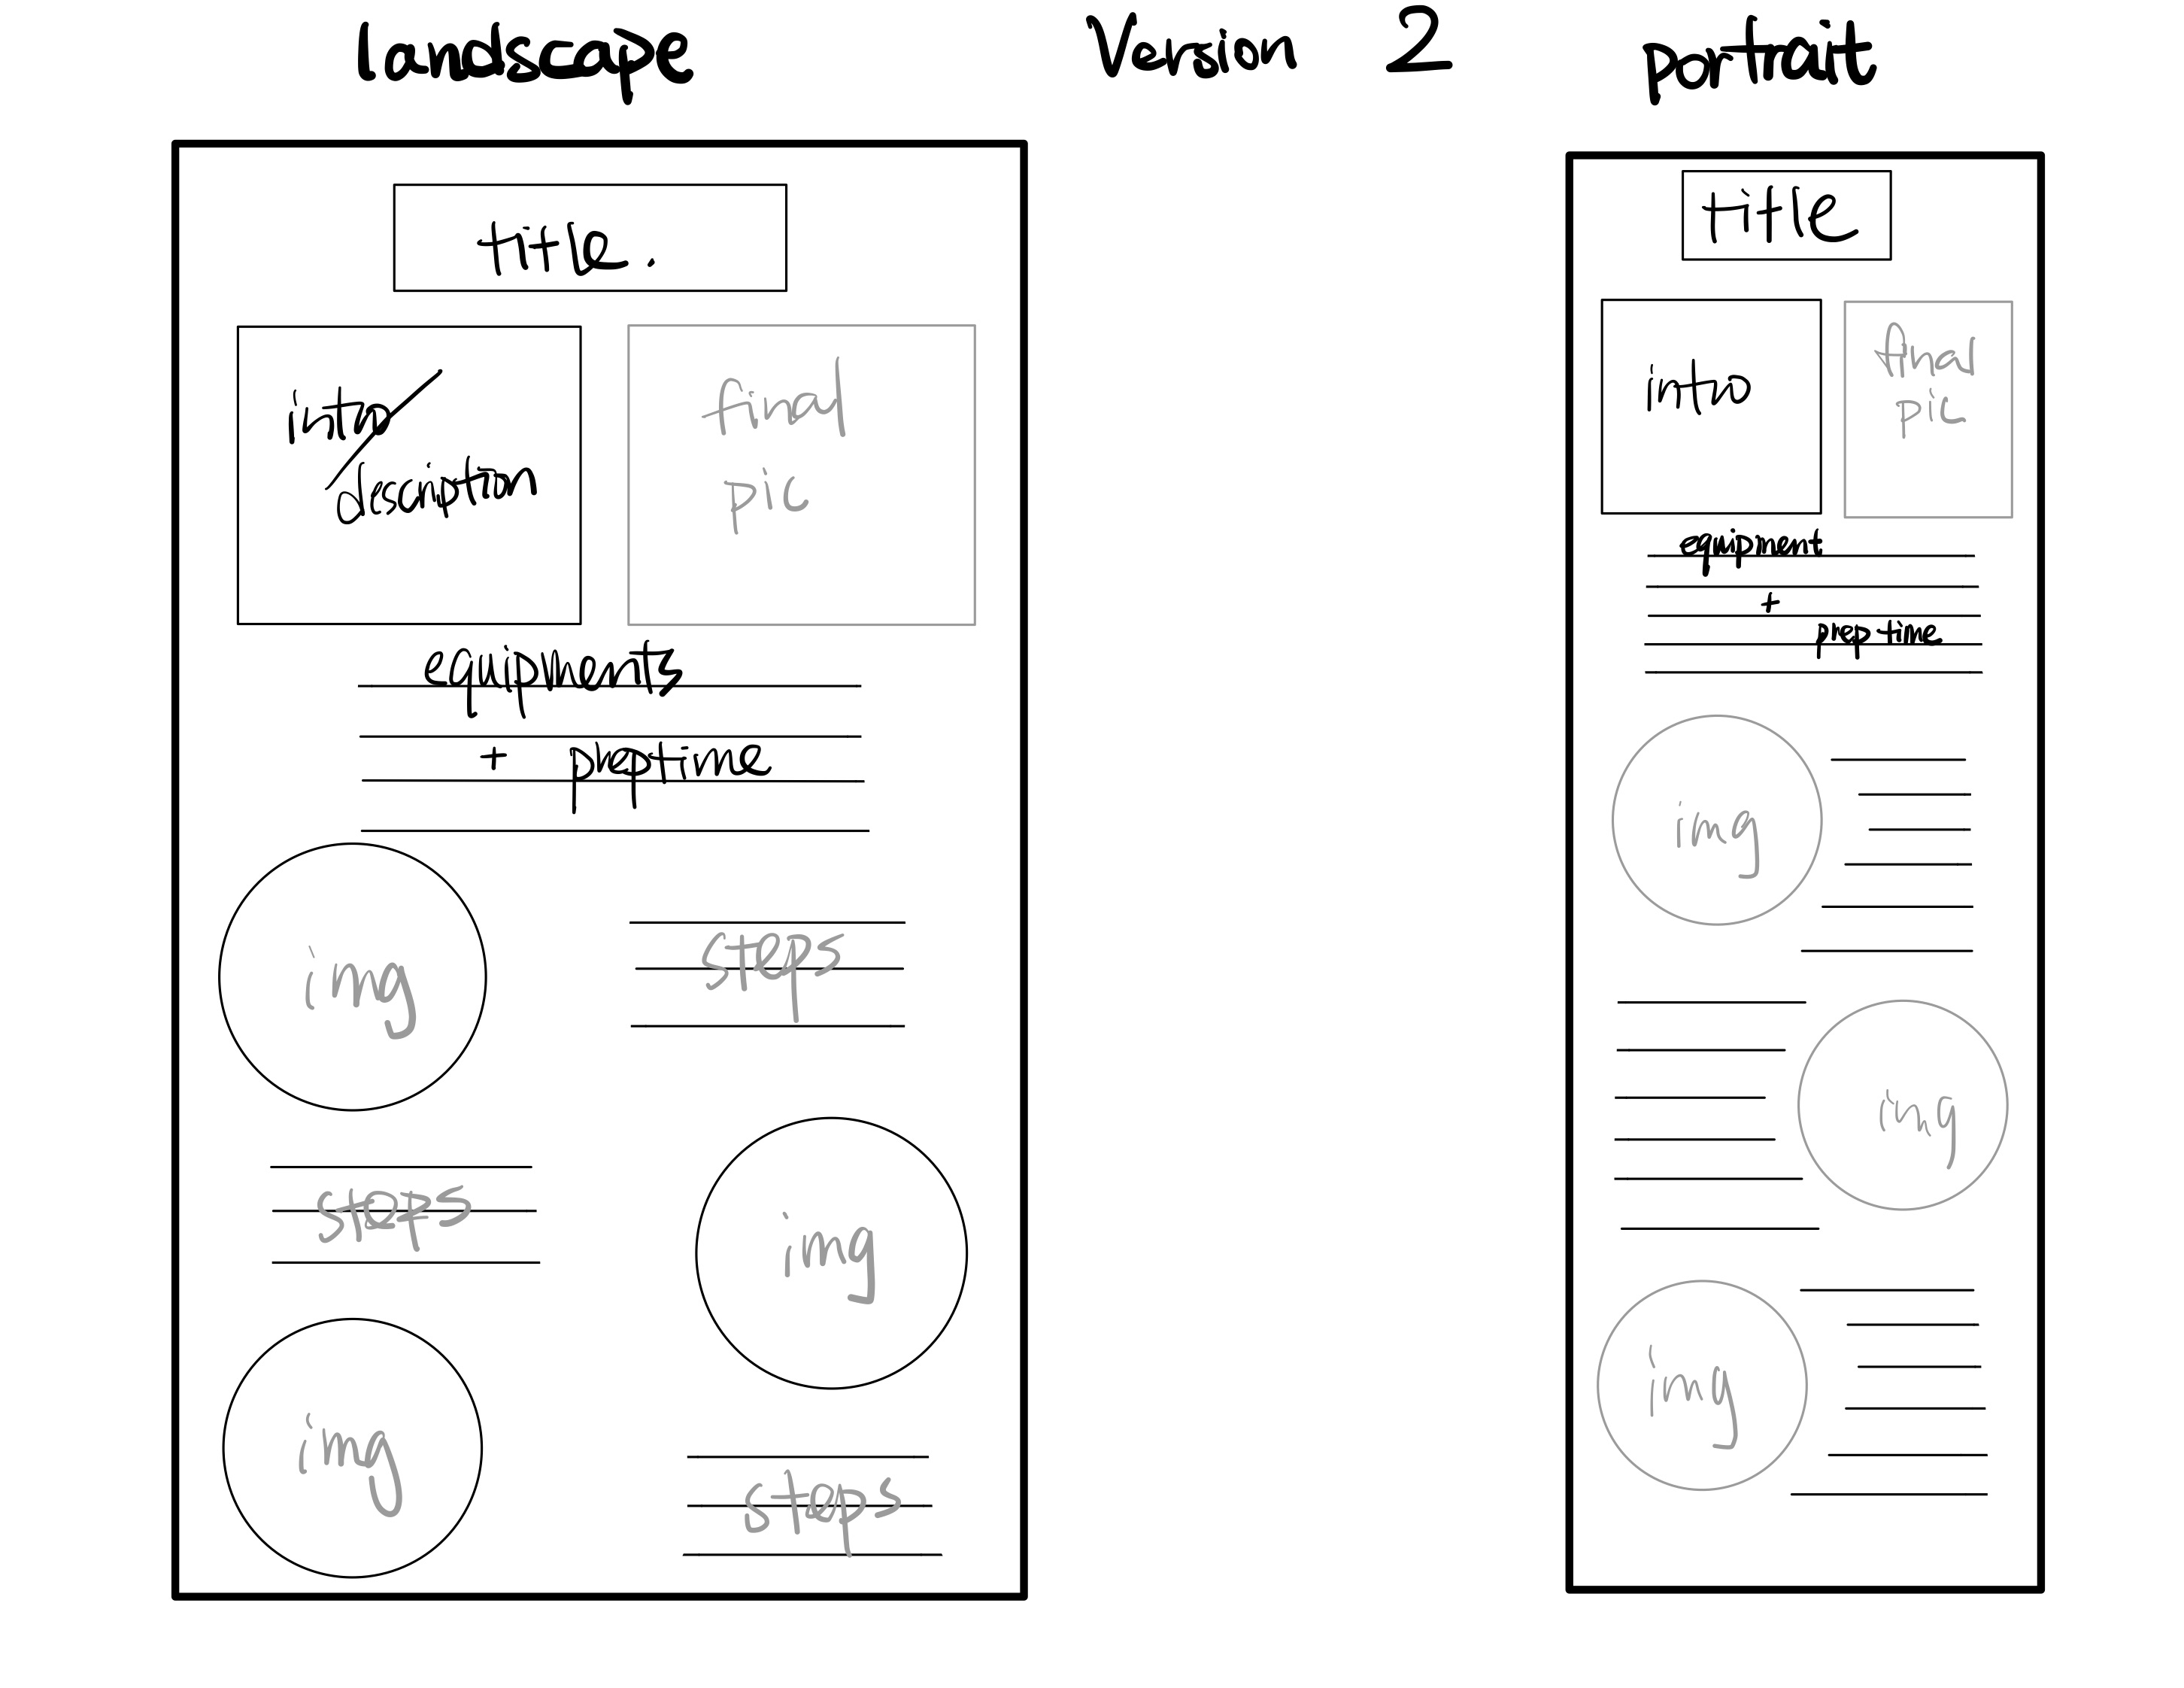 landscape Version 2 portrait
title.
intro/
description
final
pic
equipments
+ preptime
img
steps
steps
img
img
steps
title
intro
final
pic
equipment
+
prep time
img
img
img